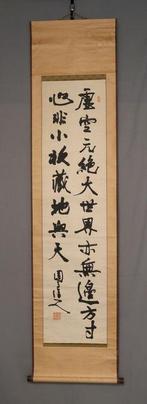 虛空元絶大世界亦無邊方寸
心非小收藏地與天